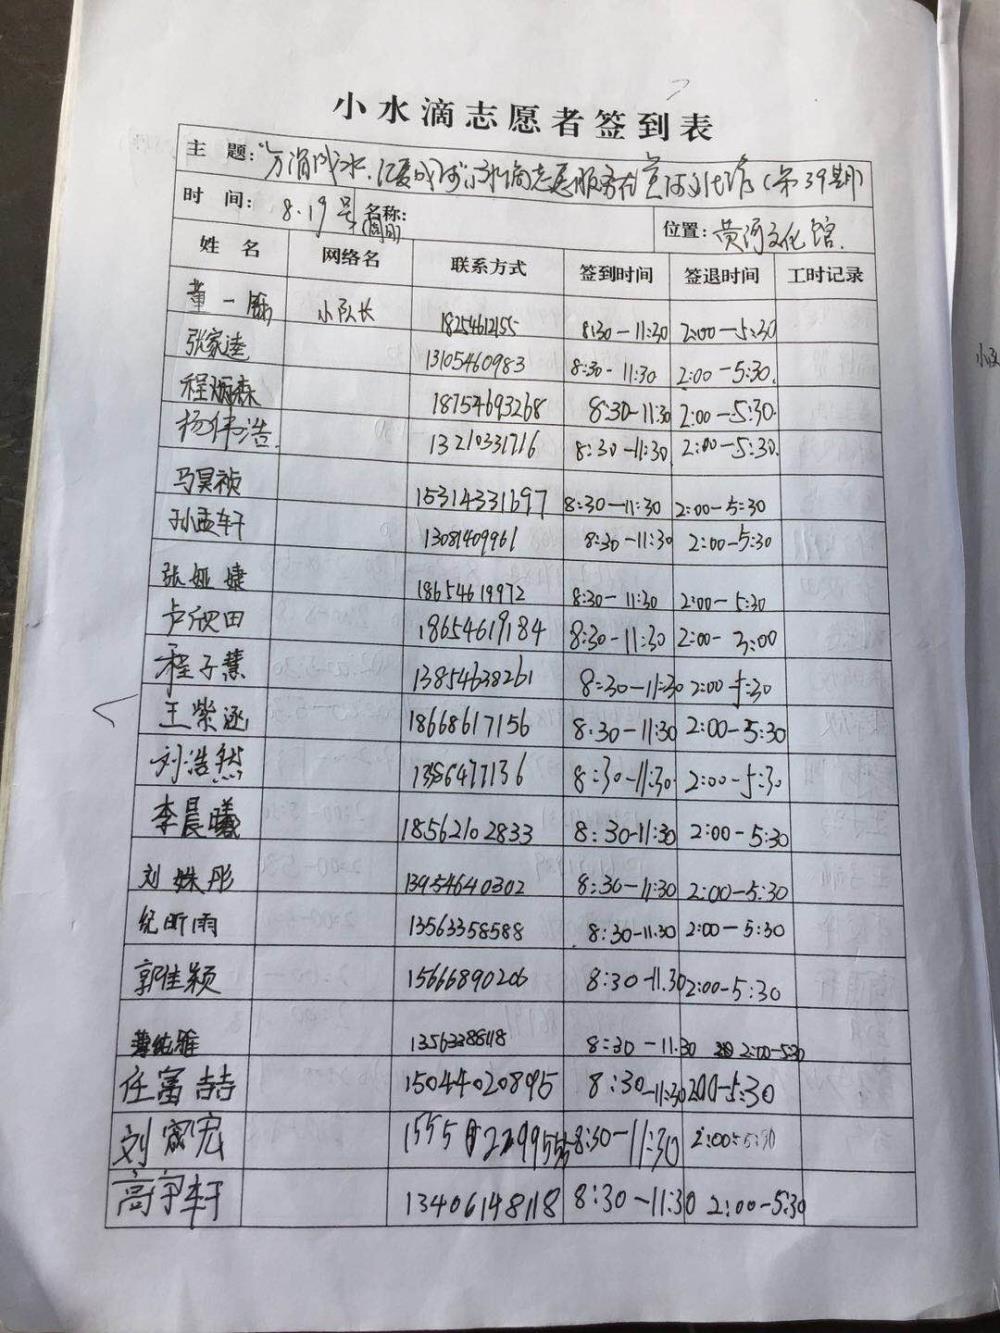 小水滴志愿者签到表
主 题: 小水滴志愿服务在黄河文化馆(第39期)
时 间: 8.19号 名称: 位置: 黄河文化馆.
姓 名 网络名 联系方式 签到时间 签退时间 工时记录
董一 小队长 18254612155 8:30-11:30 2:00-5:30
张家逵 13105460983 8:30-11:30 2:00-5:30.
程炳森 18754693268 8:30-11:30 2:00-5:30.
杨伟浩. 13210331716 8:30-11:30 2:00-5:30.
马昊祯 15314331697 8:30-11:30 2:00-5:30
孙孟轩 13081409961 8:30-11:30 2:00-5:30
张娅婕 18654619972 8:30-11:30 2:00-5:30
卢欣田 18654619184 8:30-11:30 2:00-3:00
程子慧 13854638261 8:30-11:30 2:00-5:30
王紫涵 18668617156 8:30-11:30 2:00-5:30
刘浩然 8:30-11:30 2:00-5:30
李晨曦 18562102833 8:30-11:30 2:00-5:30
刘姝彤 13954640302 8:30-11:30 2:00-5:30
纪昕雨 13563358588 8:30-11.30 2:00-5:30
郭佳颖 15666890206 8:30-11.30 2:00-5:30
8:30-11.30 2:00-5:30
任富喆 15044020895 8:30-11:30 2:00-5:30
刘宸宏 8:30-11:30 2:00-5:30
高宇轩 13406148118 8:30-11:30 2:00-5:30